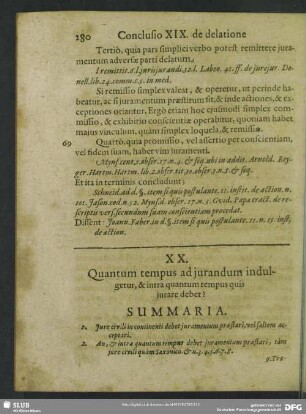 280 Conclusio XIX. de delatione
Tertiò, quia pars simplici verbo potest remittere jura-
mentum adversæ parti delatum,
l. remittit. d. l. jurisjurandi. 32. l. Labeo. 41. ff. de jurejur. Do-
nell. lib. 24. comm. c. 5. in med.
Si remissio simplex valeat, & operetur, ut perinde ha-
beatur, ac si juramentum præstitum sit, & inde actiones, & ex-
ceptiones oriantur. Ergò etiam hoc ejusmodi simplex com-
missio, & exhibitio conscientiæ operabitur, quoniam habet
majus vinculum, quàm simplex loquela, & remissio.
69 Quartò, quia promissio, vel assertio per conscientiam,
vel fidem suam, habet vim juramenti.
Myns. cent. 2. obser. 17. n. 4. & seq. ubi in addit. Arnold. Rey-
ger. Hartm. Hartm. lib. 2. obser. tit. 30. obser. 3. n. 5. & seq.
Et ita in terminis concludunt;
Schneid. ad d. §. item si quis postulante. 11. instit. de action. n.
101. Jason. eod. n. 52. Myns. d. obser. 17. n. 5. Guid. Papa tract. de re-
scriptis vers. secundum suam conscientiam procedat.
Dissent: Joann. Faber in d. §. item si quis postulante. 11. n. 15. inst.
de action.
XX.
Quantum tempus ad jurandum indul-
getur, & intra quantum tempus quis
jurare debet?
SUMMARIA.
1. Jure civili in continenti debet juramentum præstari, vel saltem ac-
ceptari.
2. An, & intra quantum tempus debet juramentum præstari, tàm
jure civili quàm Saxonico & n. 3. 4. 5. 6. 7. 8.